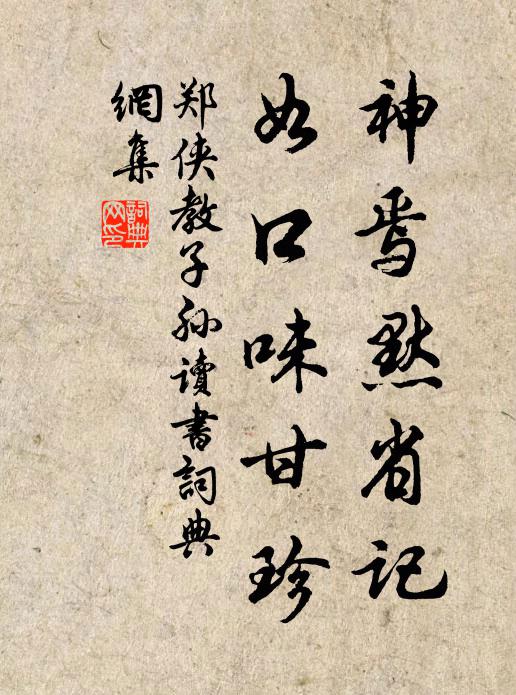 神焉默省记
如口味甘珍
郑侠教子孙读書詞典
網集
詞典网印